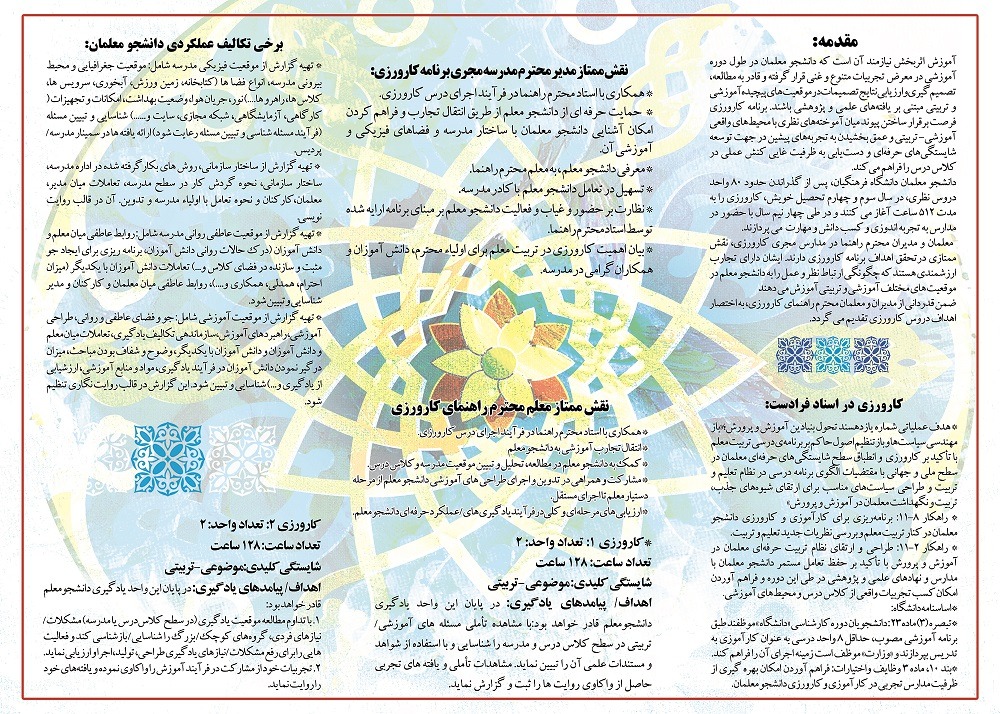 مقدمه:
آموزش اثربخش نیازمند آن است که دانشجو معلمان در طول دوره
آموزشی در معرض تجربیات متنوع و غنی قرار گرفته و قادر به مطالعه،
تصمیم گیری وارزیابی نتایج تصمیمات در موقعیت‌های پیچیده آموزشی
و تربیتی مبتنی بر یافته‌های علمی و پژوهشی باشند. برنامه کارورزی
فرصت برقرار ساختن پیوند میان آموخته‌های نظری با محیط‌های واقعی
آموزشی- تربیتی و عمق بخشیدن به تجربه‌های پیشین در جهت توسعه
شایستگی‌های حرفه‌ای و دست‌یابی به ظرفیت عایی کنش عملی در
کلاس درس را فراهم می‌کند.
دانشجو معلمان دانشگاه فرهنگیان، پس از گذراندن حدود ۸۰ واحد
دروس نظری، در سال سوم و چهارم تحصیل خویش، کارورزی را به
مدت ۵۱۲ ساعت آغاز می کنند و در طی چهار نیم سال با حضور در
مدارس به تجربه اندوزی و کسب دانش و مهارت می پردازند.
معلمان و مدیران محترم راهنما در مدارس مجری کارورزی، نقش
ممتازی در تحقق اهداف برنامه کارورزی دارند. ایشان دارای تجارب
ارزشمندی هستند که چگونگی ارتباط نظر و عمل را به دانشجو معلم در
موقعیت‌های مختلف آموزشی و تربیتی آموزش می‌دهند
ضمن قدردانی از مدیران و معلمان محترم راهنمای کارورزی، به اختصار
اهداف دروس کارورزی تقدیم می گردد.
کارورزی در اسناد فرادست:
*هدف عملیاتی شماره یازدهسند تحول بنیادین آموزش و پرورش:«باز
مهندسی سیاست‌ها و بازتنظیم اصول حاکم بر برنامه‌ی درسی تربیت معلم
با تأکید بر کارورزی و انطباق سطح شایستگی‌های حرفه‌ای معلمان در
سطح ملی و جهانی با مقتضیات الگوی برنامه درسی در نظام تعلیم و
تربیت و طراحی سیاست‌های مناسب برای ارتقای شیوه‌های جذب،
تربیت و نگهداشت معلمان در آموزش و پرورش»
* راهکار ۸-۱۱: برنامه‌ریزی برای کارآموزی و کارورزی دانشجو
معلمان در کنار تربیت معلم و بررسی نظریات جدید تعلیم و تربیت.
* راهکار ۲-۱۱: طراحی و ارتقای نظام تربیت حرفه‌ای معلمان در
آموزش و پرورش با تأکید بر حفظ تعامل مستمر دانشجو معلمان با
مدارس و نهادهای علمی و پژوهشی در طی این دوره و فراهم آوردن
امکان کسب تجربیات واقعی از کلاس درس و محیط‌های آموزشی.
*اساسنامه دانشگاه:
*تبصره (۳)ماده۲۳:دانشجویان دوره کارشناسی «دانشگاه» موظفند طبق
برنامه آموزشی مصوب، حداقل ۸ واحد درسی به عنوان کارآموزی به
تدریس بپردازند و «وزارت» موظف است زمینه اجرای آن را فراهم کند.
*بند ۱۰، ماده ۳ وظایف و اختیارات: فراهم آوردن امکان بهره گیری از
ظرفیت مدارس تجربی در کارآموزی و کارورزی دانشجو معلمان.
نقش ممتاز مدیر محترم مدرسه مجری برنامه کارورزی:
*همکاری با استاد محترم راهنما در فرآیند اجرای درس کارورزی.
* حمایت حرفه ای از دانشجو معلم از طریق انتقال تجارب و فراهم کردن
امکان آشنایی دانشجو معلمان با ساختار مدرسه و فضاهای فیزیکی و
آموزشی آن.
*معرفی دانشجو معلم، به معلم محترم راهنما.
* تسهیل در تعامل دانشجو معلم با کادر مدرسه.
* نظارت بر حضور و غیاب و فعالیت دانشجو معلم بر مبنای برنامه ارایه شده
توسط استاد محترم راهنما.
* بیان اهمیت کارورزی در تربیت معلم برای اولیاء محترم، دانش آموزان و
همکاران گرامی در مدرسه.
نقش ممتاز معلم محترم راهنمای کارورزی
*همکاری با استاد محترم راهنما در فرآیند اجرای درس کارورزی.
*انتقال تجارب آموزشی به دانشجو معلم
*کمک به دانشجو معلم در مطالعه، تحلیل و تبیین موقعیت مدرسه و کلاس درس.
*مشارکت و همراهی در تدوین و اجرای طراحی های آموزشی دانشجو معلم از مرحله
دستیار معلم تا اجرای مستقل.
*ارزیابی‌های مرحله‌ای و کلی در فرآیند یادگیری های/عملکرد حرفه‌ای دانشجو معلم.
* کارورزی ۱: تعداد واحد: ۲
تعداد ساعت: ۱۲۸ ساعت
شایستگی کلیدی:موضوعی-تربیتی
اهداف/ پیامدهای یادگیری: در پایان این واحد یادگیری
دانشجو معلم قادر خواهد بود:با مشاهده تأملی مسئله های آموزشی/
تربیتی در سطح کلاس درس و مدرسه را شناسایی و با استفاده از شواهد
و مستندات علمی آن را تبیین نماید. مشاهدات تأملی و یافته های تجربی
حاصل از واکاوی روایت ها را ثبت و گزارش نماید.
برخی تکالیف عملکردی دانشجو معلمان:
* تهیه گزارش از موقعیت فیزیکی مدرسه شامل: موقعیت جغرافیایی و محیط
بیرونی مدرسه، انواع فضا ها (کتابخانه، زمین ورزش، آبخوری، سرویس ها،
کلاس‌ها، راهرو ها...) نور، جریان هوا، وضعیت بهداشت، امکانات و تجهیزات (
کارگاهی، آزمایشگاهی، شبکه مجازی، سایت و....) شناسایی و تبیین مسئله
(فرآیند مسئله شناسی و تبیین مسئله رعایت شود) ارائه یافته ها در سمینار مدرسه/
پردیس.
* تهیه گزارش از ساختار سازمانی، روش های بکار گرفته شده در اداره مدرسه،
ساختار سازمانی، نحوه گردش کار در سطح مدرسه، تعاملات میان مدیر،
معلمان، کارکنان و نحوه تعامل با اولیاء مدرسه و تدوین. آن در قالب روایت
نویسی.
* تهیه گزارش از موقعیت عاطفی روانی مدرسه شامل: روابط عاطفی میان معلم و
دانش آموزان (درک حالات روانی دانش آموزان، برنامه ریزی برای ایجاد جو
مثبت و سازنده در فضای کلاس و...) تعاملات دانش آموزان با یکدیگر (میزان
احترام، همدلی، همکاری و....)، روابط عاطفی میان معلمان و کارکنان و مدیر
شناسایی و تبیین شود.
* تهیه گزارش از موقعیت آموزشی شامل: جو و فضای عاطفی و روانی، طراحی
آموزشی، راهبردهای آموزش، سازماندهی تکالیف یادگیری، تعاملات میان معلم
و دانش آموزان و دانش آموزان با یکدیگر، وضوح و شفاف بودن مباحث، میزان
درگیر نمودن دانش آموزان در فرآیند یادگیری، مواد و منابع آموزشی، ارزشیابی
از یادگیری و...) شناسایی و تبیین شود. این گزارش در قالب روایت نگاری تنظیم
شود.
کارورزی ۲: تعداد واحد: ۲
تعداد ساعت: ۱۲۸ ساعت
شایستگی کلیدی:موضوعی-تربیتی
اهداف/ پیامدهای یادگیری: در پایان این واحد یادگیری دانشجو معلم
قادر خواهد بود:
۱. با تداوم مطالعه موقعیت یادگیری (در سطح کلاس درس یا مدرسه) مشکلات/
نیازهای فردی، گروه‌های کوچک/ بزرگ را شناسایی/ بازشناسی کند و فعالیت
هایی را برای رفع مشکلات/ نیازهای یادگیری طراحی، تولید، اجرا و ارزیابی نماید.
۲. تجربیات خود از مشارکت در فرآیند آموزش را واکاوی نموده و یافته‌های خود
را روایت نماید.